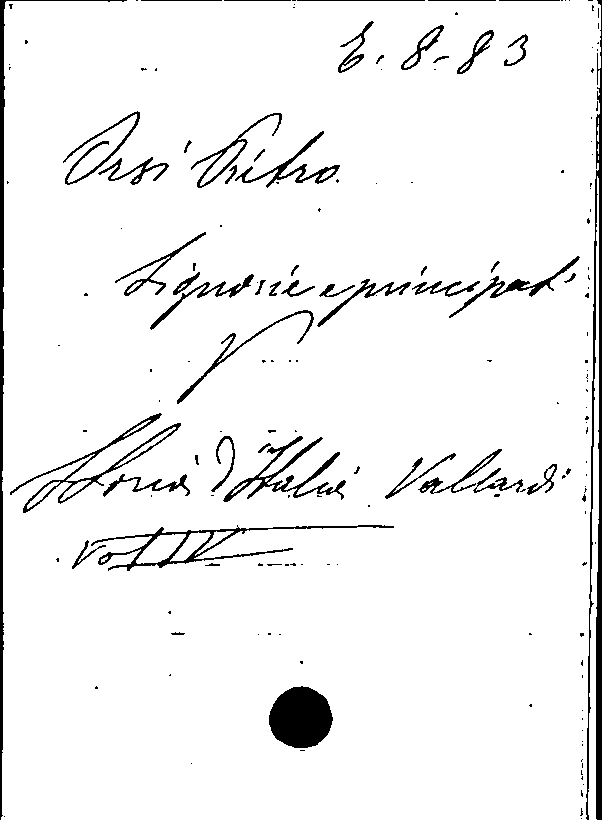 E. 8-83
Orsi Pietro
Signorie e principati
V
Storia d'Italia Vallardi
Vol IV